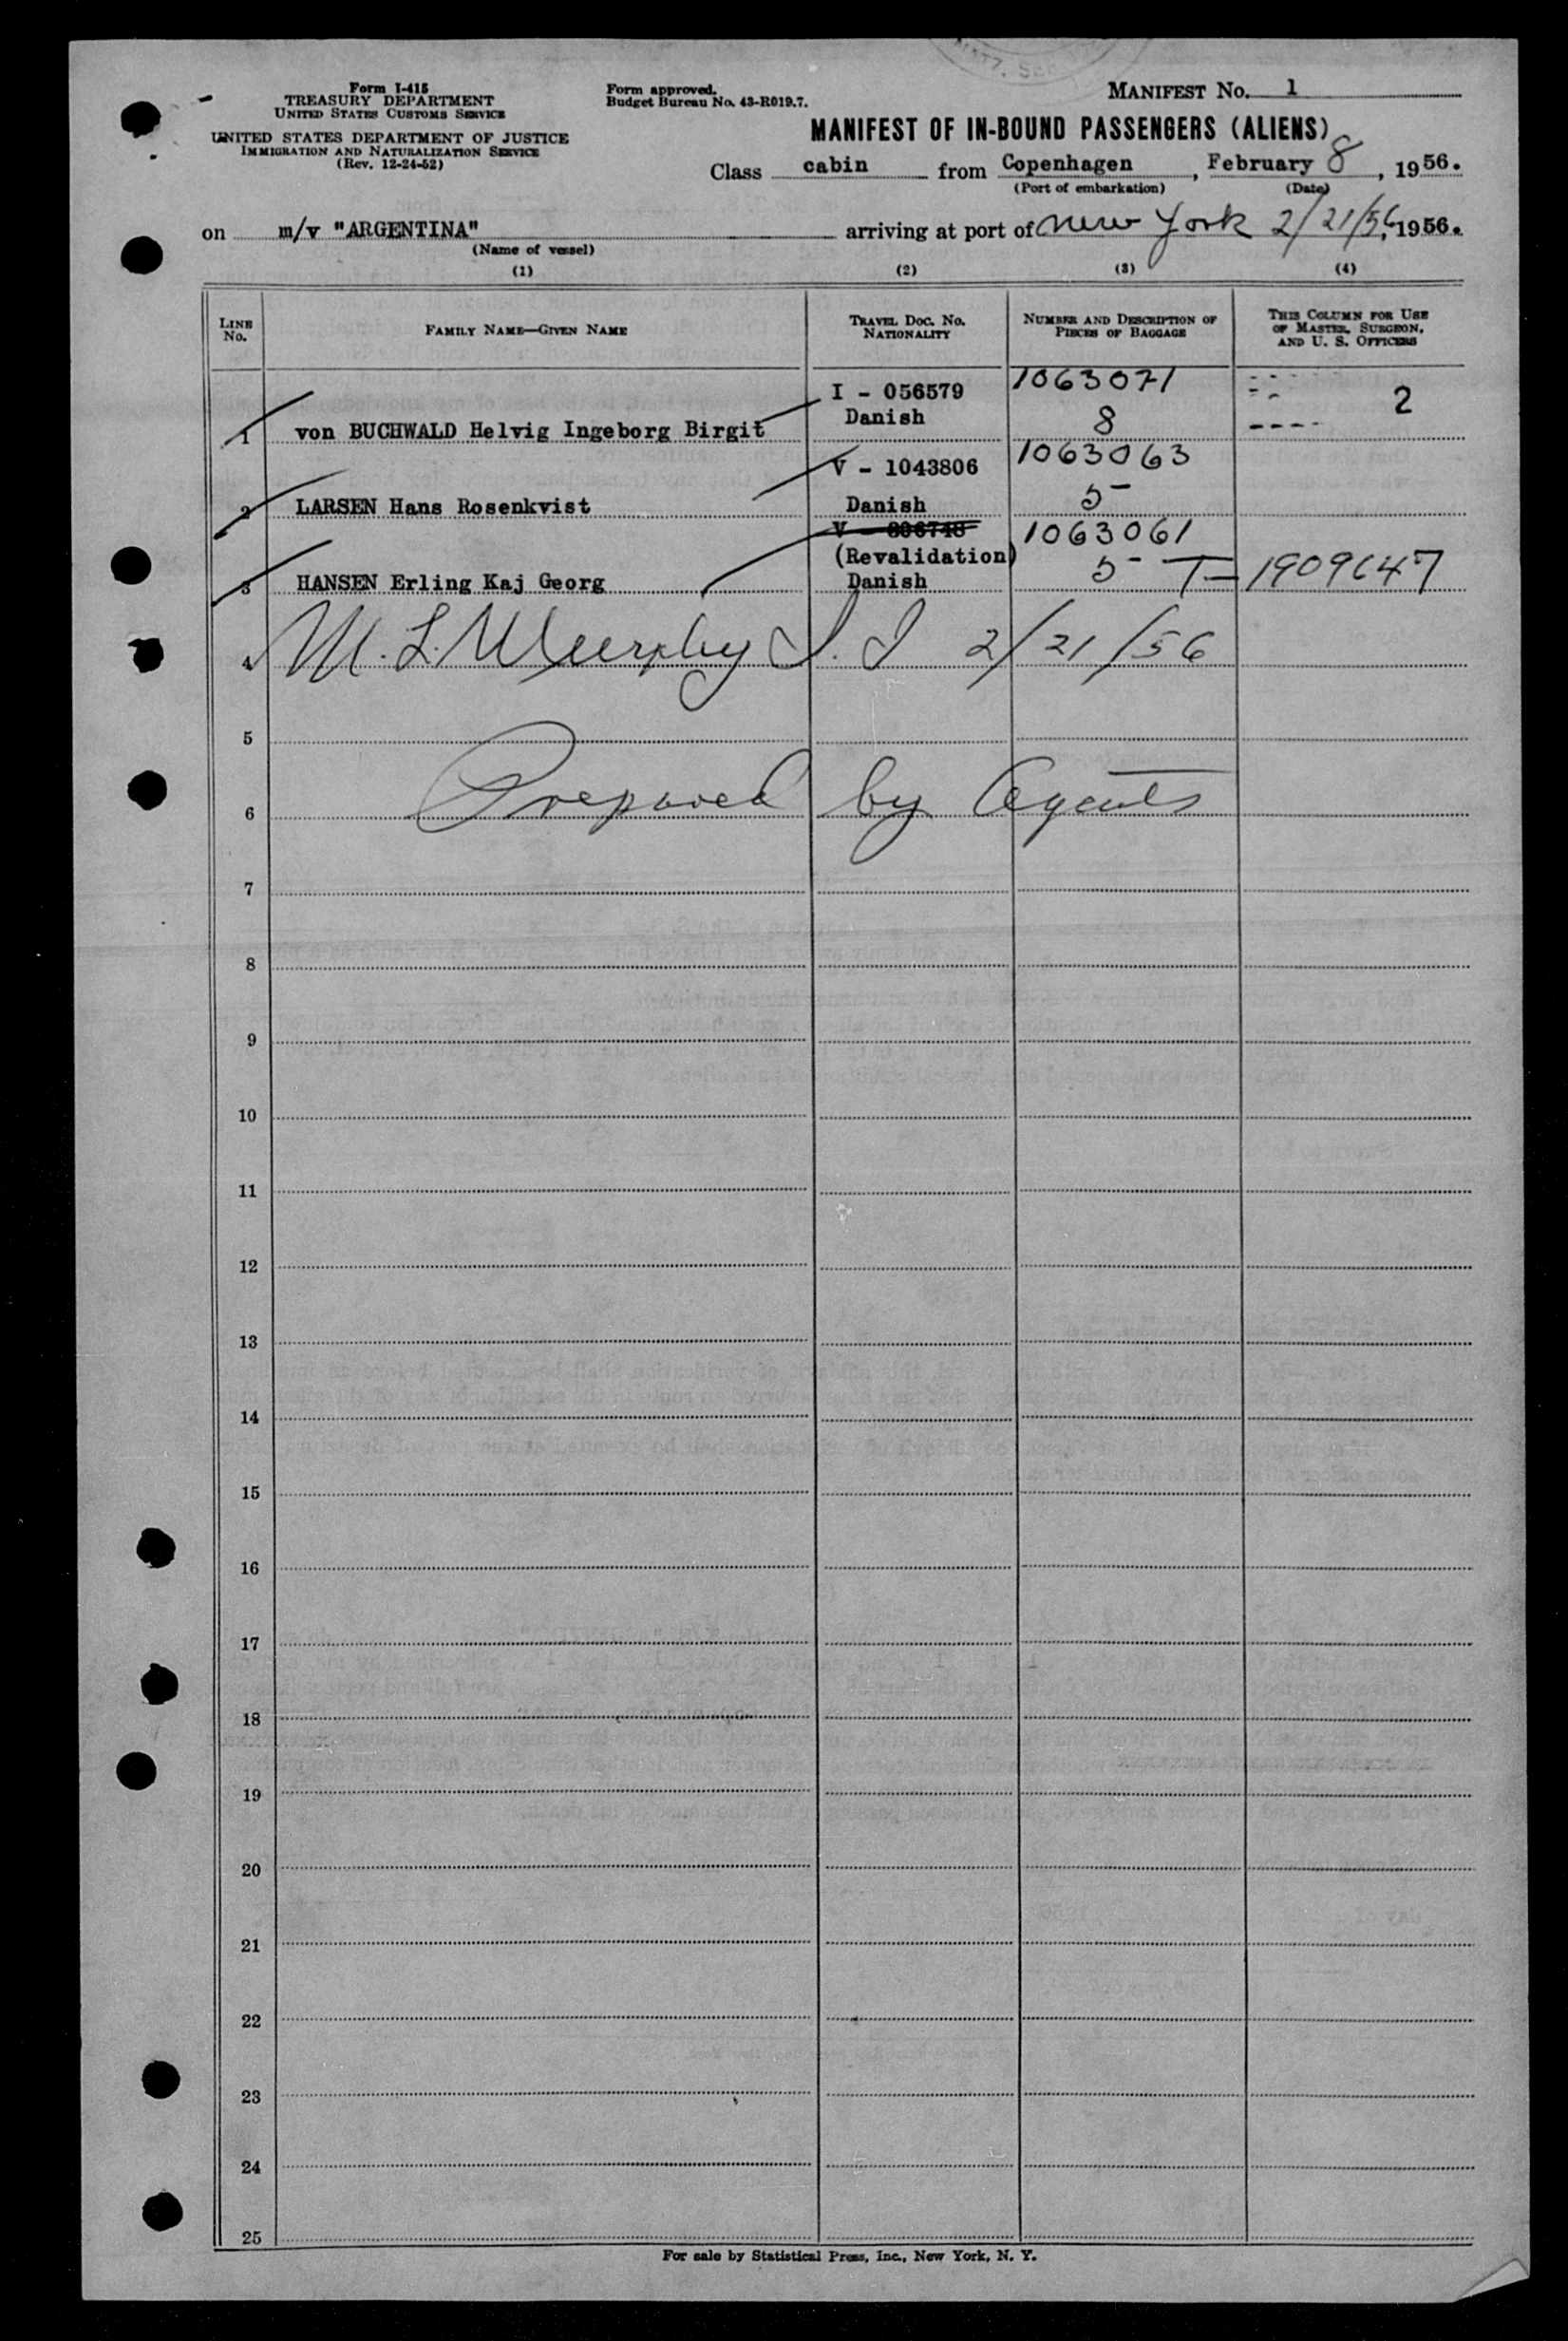 NATZ. SER
Form I-415
TREASURY DEPARTMENT
UNITED STATES CUSTOMS SERVICE
UNITED STATES DEPARTMENT OF JUSTICE
IMMIGRATION AND NATURALIZATION SERVICE
(Rev. 12-24-52)
Form approved.
Budget Bureau No. 43-R019.7.
MANIFEST No. 1
MANIFEST OF IN-BOUND PASSENGERS (ALIENS)
Class cabin from Copenhagen, February 8, 1956.
(Port of embarkation) (Date)
on m/v "ARGENTINA" arriving at port of New York 2/21/56, 1956.
(Name of vessel)
(1) (2) (3) (4)
LINE No. FAMILY NAME—GIVEN NAME TRAVEL DOC. NO. NATIONALITY NUMBER AND DESCRIPTION OF PIECES OF BAGGAGE THIS COLUMN FOR USE OF MASTER, SURGEON, AND U. S. OFFICERS
I - 056579 1063071
1 von BUCHWALD Helvig Ingeborg Birgit Danish 8 2
V - 1043806 1063063
2 LARSEN Hans Rosenkvist Danish 5
1063061
(Revalidation)
3 HANSEN Erling Kaj Georg Danish 5 T-1909647
4 M. L. Murphy I. I 2/21/56
5
6 Prepared by Agents
7
8
9
10
11
12
13
14
15
16
17
18
19
20
21
22
23
24
25
For sale by Statistical Press, Inc., New York, N. Y.